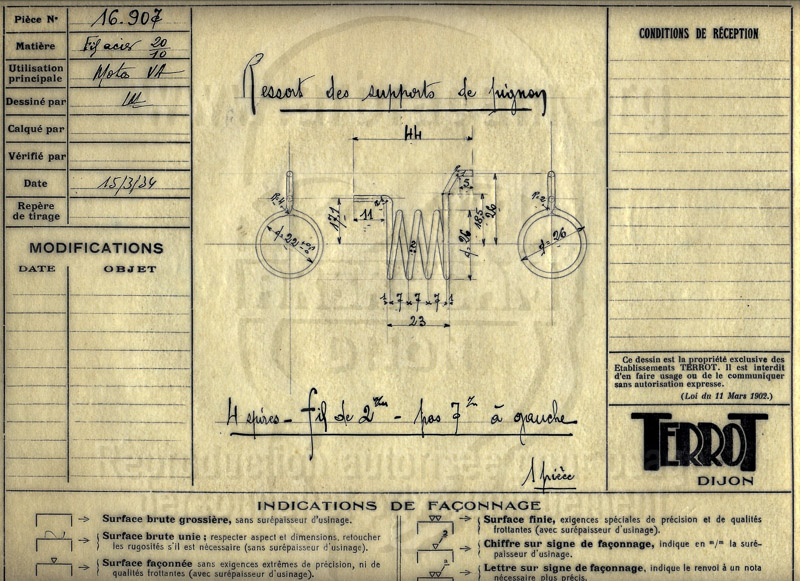 Pièce N° 16.907
Matière Fil acier 20/10
Utilisation principale Moto VA
Dessiné par
Calqué par
Vérifié par
Date 15/3/34
Repère de tirage
MODIFICATIONS
DATE OBJET
Ressort des supports de pignon
44
11
17,1
5
18,5
26
ϕ=26
ϕ=26
1 7 7 7 1
23
4 spires - fil de 2 m/m - pas 7 m/m à gauche
1 pièce
CONDITIONS DE RÉCEPTION
Ce dessin est la propriété exclusive des
Etablissements TERROT. Il est interdit
d'en faire usage ou de le communiquer
sans autorisation expresse.
(Loi du 11 Mars 1902.)
TERROT
DIJON
INDICATIONS DE FAÇONNAGE
Surface brute grossière, sans surépaisseur d'usinage.
Surface brute unie ; respecter aspect et dimensions, retoucher
les rugosités s'il est nécessaire (sans surépaisseur d'usinage).
Surface façonnée sans exigences extrêmes de précision, ni de
qualités frottantes (avec surépaisseur d'usinage).
Surface finie, exigences spéciales de précision et de qualités
frottantes (avec surépaisseur d'usinage).
Chiffre sur signe de façonnage, indique en m/m la suré-
paisseur d'usinage.
Lettre sur signe de façonnage, indique le renvoi à un nota
nécessaire plus précis.